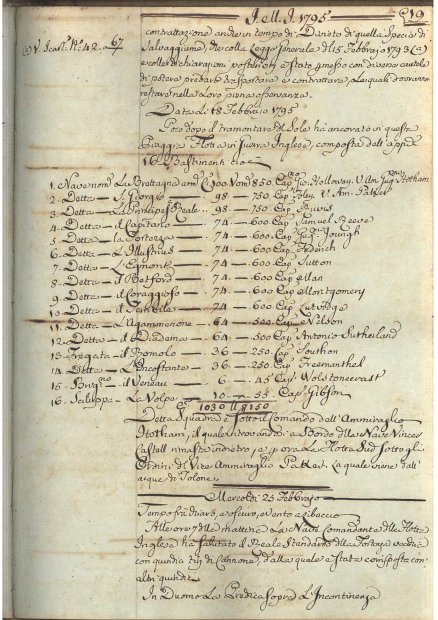 I. M. I. 1795
19
(a) V. Scart. No. 42. a 67
contrattazione anche in tempo di Divieto di quella Specie di
Salvaggiume, che colla Legge Generale de 15 Febbrajo 1793 (a)
e colle dichiarazioni posteriori è stato permesso con diverse cautele
di potersi predare trasportare e contrattare, le quali dovranno
restare nella Loro piena osservanza.
Data Li 18 Febbrajo 1795
Poco dopo il tramontare del Sole ha ancorato in questa
Piaggia Flotta in Guerra Inglese, composta dell'appiè
16 Bastimenti cioè
1. Nave nom. La Brettagna cann. 100 Uom. 850 Cap. Gio. Holloway, V. Am. Hotham
2. Detta — S. Giorgio — 98 — 750 Cap. Foley V. Am. Parker
3. Detta — La Principessa Reale — 98 — 750 Cap. Purvis
4. Detta — il Capitano — 74 — 600 Cap. Samuel Reeve
5. Detta — la Fortezza — 74 — 600 Cap. Young
6. Detta — L'Illustrius — 74 — 600 Cap. Federich
7. Detta — L'Egmont — 74 — 600 Cap. Sutton
8. Detta — il Betford — 74 — 600 Cap. Man
9. Detta — il Coraggioso — 74 — 600 Cap. Montgomery
10. Detta — il Terribile — 74 — 600 Cap.
11. Detta — L'Agammenone — 64 — 500 Cap. Nelson
12. Detta — il Diadema — 64 — 500 Cap. Antonio Sutherland
13. Fregata il Romolo — 36 — 250 Cap. Southon
14. Detta — L'Incostante — 36 — 250 Cap. Freemanthel
15. Brig.no il — 6 — 45 Cap. Wolstonecraft
16. Sciluppa La Volpe — 10 — 55 Cap. Gibson
1030 U. 8150
Detta Squadra è sotto il Comando dell'Ammiraglio
Hotham, il quale ritrovandosi a Bordo della Nave
rimasta indietro, e p. ora La Flotta è sotto gl'
Ordini del Vice Ammiraglio Parker. La quale viene dall'
acque di Tolone.
Mercoldì 25 Febbrajo
Tempo frà chiaro, e oscuro, e vento a Libeccio
Alle ore 7 della mattina La Nave Comandante della Flotta
Inglese ha salutato il Reale Stendardo della Fortezza vecchia
con quindici tiri di Cannone, dalla quale è stata corrisposta con
altri quindici.
In Duomo La Predica sopra L'Incontinenza